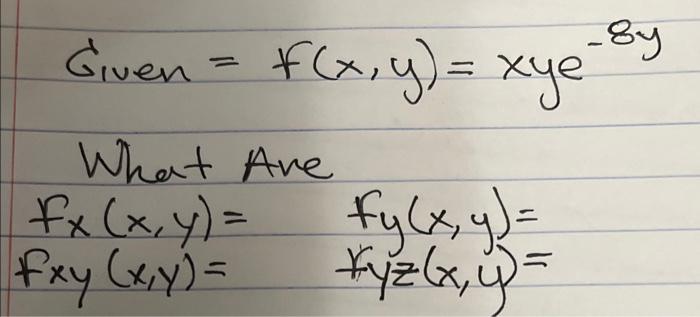 Given = f(x,y) = xye^-8y
What Are
fx(x,y)= fy(x,y)=
fxy(x,y)= fyz(x,y)=